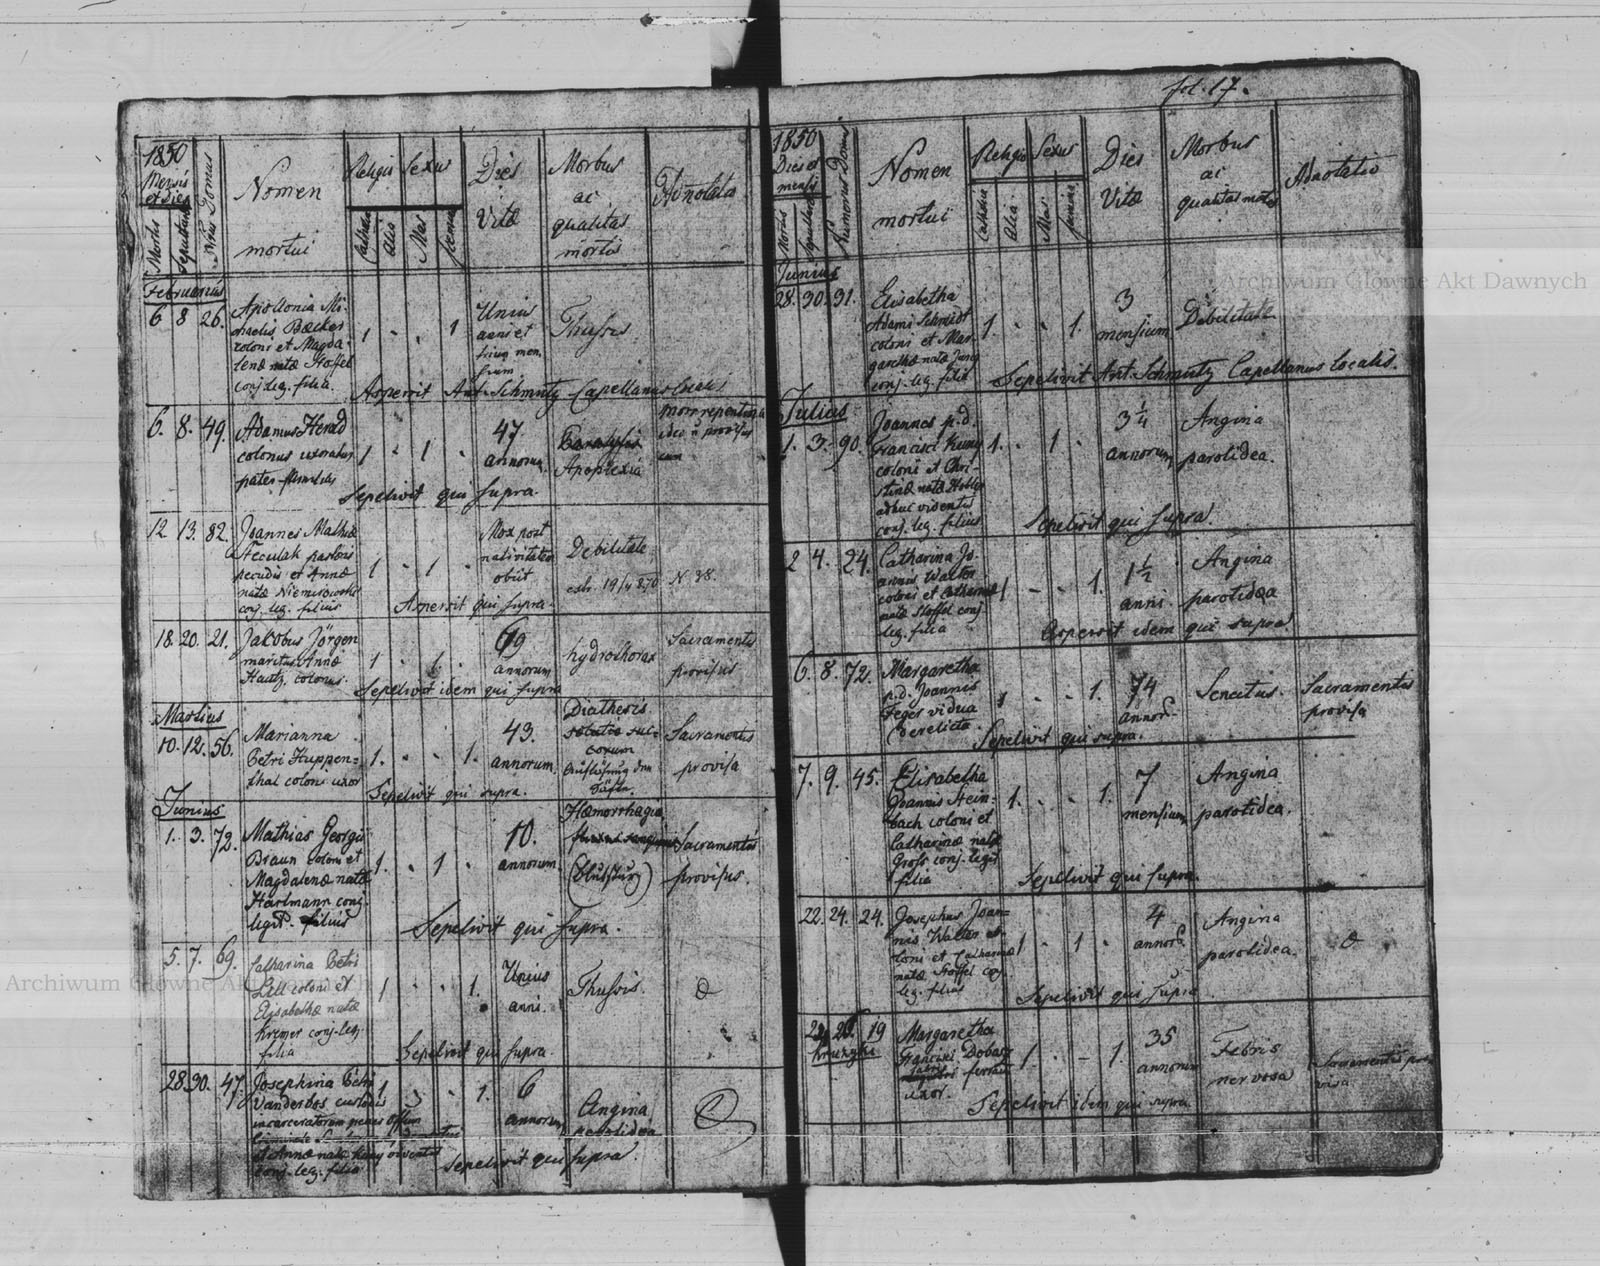 fol. 17.
1850
Mensis
et Dies
Mortis
Sepulturæ
Nrus Domus
Nomen
mortui
Religio
Sexus
Cathol.
Alia
Mas
femina
Dies
Vitæ
Morbus
ac
qualitas
mortis
Adnotata
Februarius
6 8 26.
Apollonia Mi-
chaelis Becker
coloni et Magda-
lenæ natæ Stoffel
conj. leg. filia.
1 - - 1
Unius
anni et
trium men
sium
Thussis
Aspersit Ant. Schmutz Capellanus localis
6. 8. 49.
Adamus Herold
colonus uxoratus
pater familias
1 - 1 -
47.
annorum
Paralysis
Apoplexia
Mors repentina
ideo n provisus
Sepelivit qui supra.
12. 13. 82.
Joannes Mathiæ
pastoris
pecudis et Annæ
natæ Niemirowska
conj. leg. filius
1 - 1 -
Mox post
nativitatem
obiit
Debilitate
extr. 19/4 870
N. 38.
Aspersit qui supra.
18. 20. 21.
Jakobus Jörgen
maritus Annæ
Hautz, colonus.
1 - 1. -
69
annorum
hydrothorax
Sacramentis
provisus
Sepelivit idem qui supra
Martius
10. 12. 56.
Marianna
Petri Huppen=
thal coloni uxor
1. - - 1.
43.
annorum
Diathesis
Auflösung der
Säfte.
Sacramentis
provisa
Sepelivit qui supra.
Junius
1. 3. 72.
Mathias Georgii
Braun coloni et
Magdalenæ natæ
Hartmann conj.
legit. filius
1. - 1 -
10.
annorum
Hæmorrhagia
(Blutsturz)
Sacramentis
provisus.
Sepelivit qui supra.
5. 7. 69.
Catharina Petri
Lill coloni et
Elisabethæ natæ
Kremer conj. leg.
filia
1 - - 1.
Unius
anni.
Thussis.
Sepelivit qui supra.
28. 30. 47.
Josephina Petri
Vanderbos custodis
incarceratorum penes Offium
et Annæ natæ
conj. leg. filia
1 - - 1.
6
annorum
Angina
parotidea
Sepelivit qui supra.
1850
Dies et
mensis
Mortis
Sepulturæ
Numerus Domus
Nomen
mortui
Religio
Sexus
Cathol.
Alia
Mas
femina
Dies
Vitæ
Morbus
ac
qualitas mortis
Adnotatio
Junius
28. 30. 31.
Elisabetha
Adami Schmidt
coloni et Mar-
garethæ natæ Jung
conj. leg. filia
1. - - 1.
3
mensium
Debilitate
Sepelivit Ant. Schmutz Capellanus localis.
Julius
1. 3. 90.
Joannes p.d.
Francisci Kuny
coloni et Chri-
stinæ natæ Hobler
adhuc videntis
conj. leg. filius
1. - 1 -
3 1/4
annorum
Angina
parotidea.
Sepelivit qui supra.
2 4. 24.
Catharina Jo-
annis Walter
coloni et Catharinæ
natæ Stoffel conj.
leg. filia
1 - - 1.
1 1/2
anni.
Angina
parotidea
Aspersit idem qui supra.
6. 8. 72.
Margaretha
p.d. Joannis
Feger vidua
derelicta
1 - - 1.
74
annor.
Senectus.
Sacramentis
provisa
Sepelivit qui supra.
7. 9. 45.
Elisabetha
Joannis Stein-
bach coloni et
Catharinæ natæ
Gross conj. legit
filia
1. - - 1.
7
mensium
Angina
parotidea.
Sepelivit qui supra.
22. 24. 24.
Josephus Joan=
nis Walter co-
loni et Catharinæ
natæ Stoffel conj.
leg. filius
1 - 1 -
4
annor.
Angina
parotidea.
Sepelivit qui supra
19
Margaretha
Francisci
ferrarii
uxor.
1 - - 1.
35
annorum
Febris
nervosa
Sacramentis pro-
visa
Sepelivit idem qui supra
Archiwum Główne Akt Dawnych
Archiwum Główne Akt Dawnych